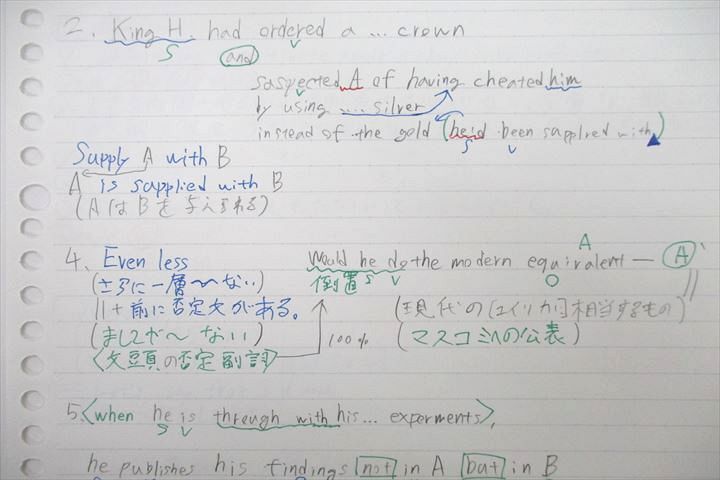 2. King H. had ordered a ... crown
S V
and
suspected A of having cheated him
V
by using ..... silver
instead of the gold (he'd been supplied with▲)
S V
Supply A with B
A is supplied with B
(AはBを与えられる)
4. Even less would he do the modern equivalent — A
A
倒置 S V O
(さらに一層〜ない) (現代の[エウレカ]相当するもの)
||+前に否定文がある。
(ましてが〜ない) 100% (マスコミへの公表)
〈文頭の否定副詞〉
5.〈when he is through with his... experments〉,
S V
he publishes his findings not in A but in B